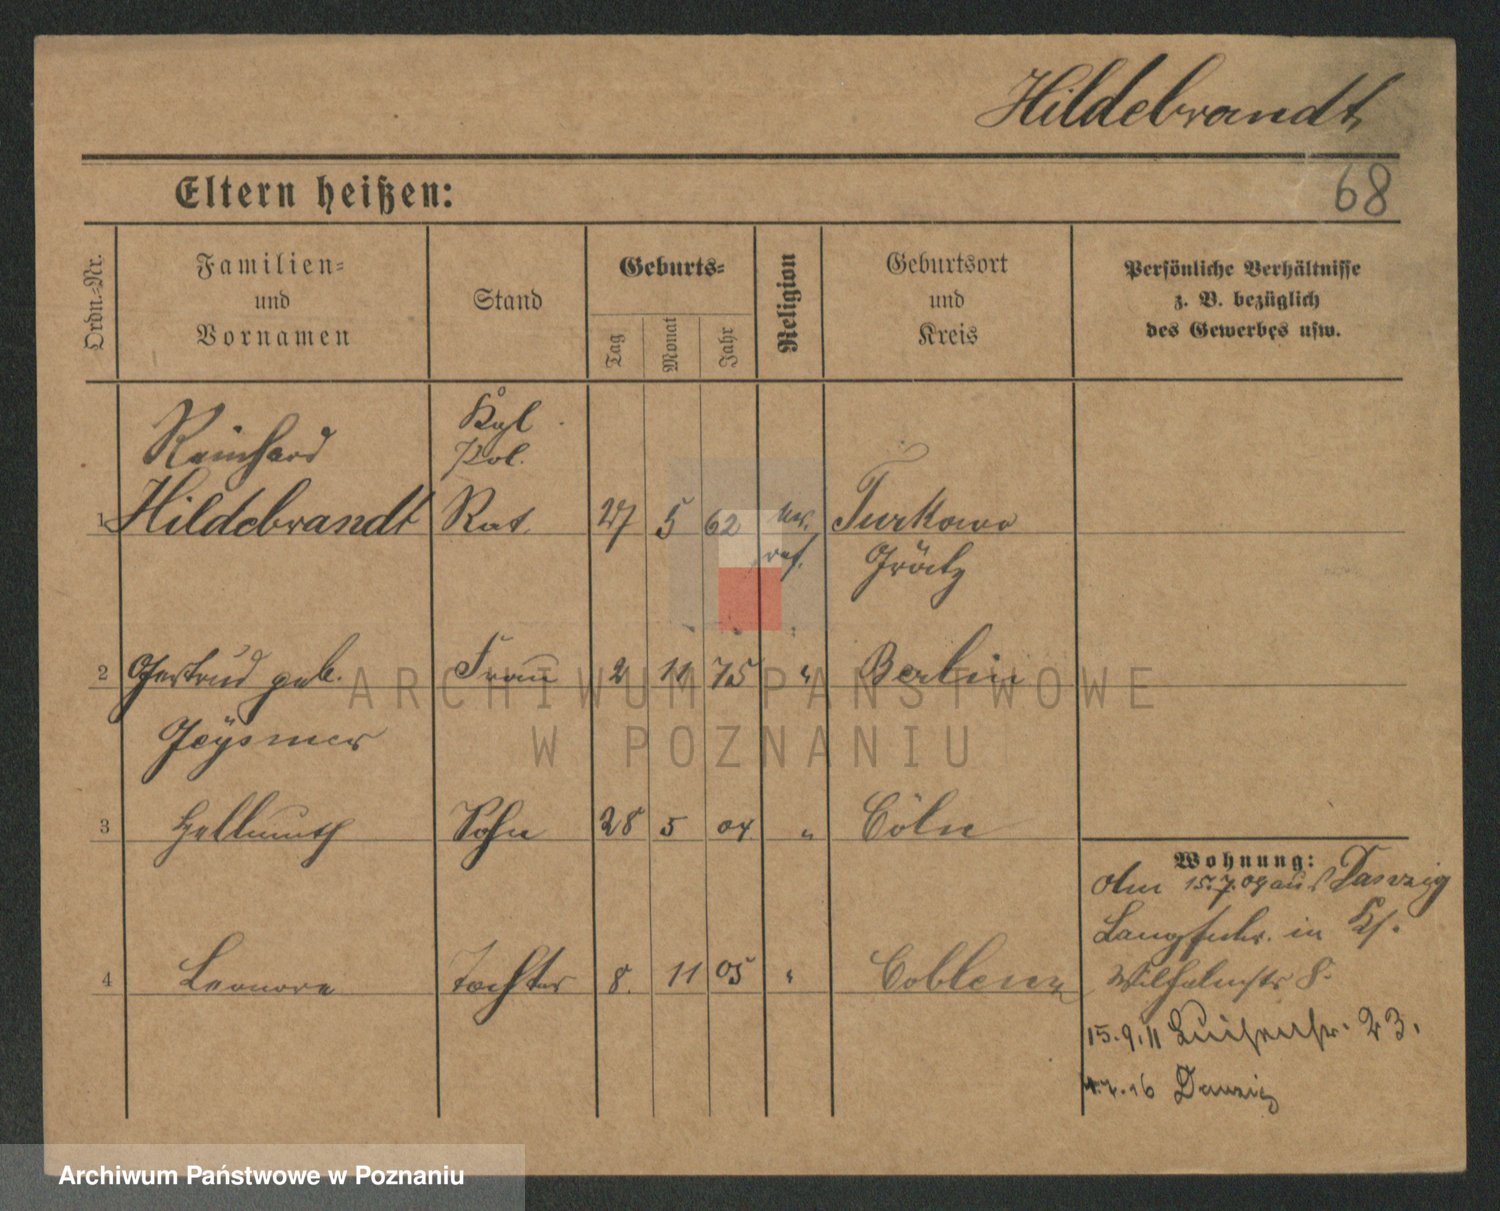 Hildebrandt
68
Eltern heißen:
Ordn.-Nr.
Familien- und Vornamen
Stand
Geburts-
Tag
Monat
Jahr
Religion
Geburtsort und Kreis
Persönliche Verhältnisse
z. B. bezüglich
des Gewerbes usw.
Reinhard Kgl.
Pol.
1 Hildebrandt Rat. 27 5 62 ev. Turkowo
ref. Grätz
2 Gertrud geb. Frau 2 11 75 " Berlin
Geysmer
3 Hellmuth Sohn 28 5 04 " Cöln
Wohnung:
Am 15.7.09 aus Danzig
Langfuhr. in
4 Leonore Tochter 8. 11 05 " Coblenz
Wilhelmstr 8.
15.9.11 Luisenstr. 23.
4.7.16 Danzig
ARCHIWUM PAŃSTWOWE
W POZNANIU
Archiwum Państwowe w Poznaniu